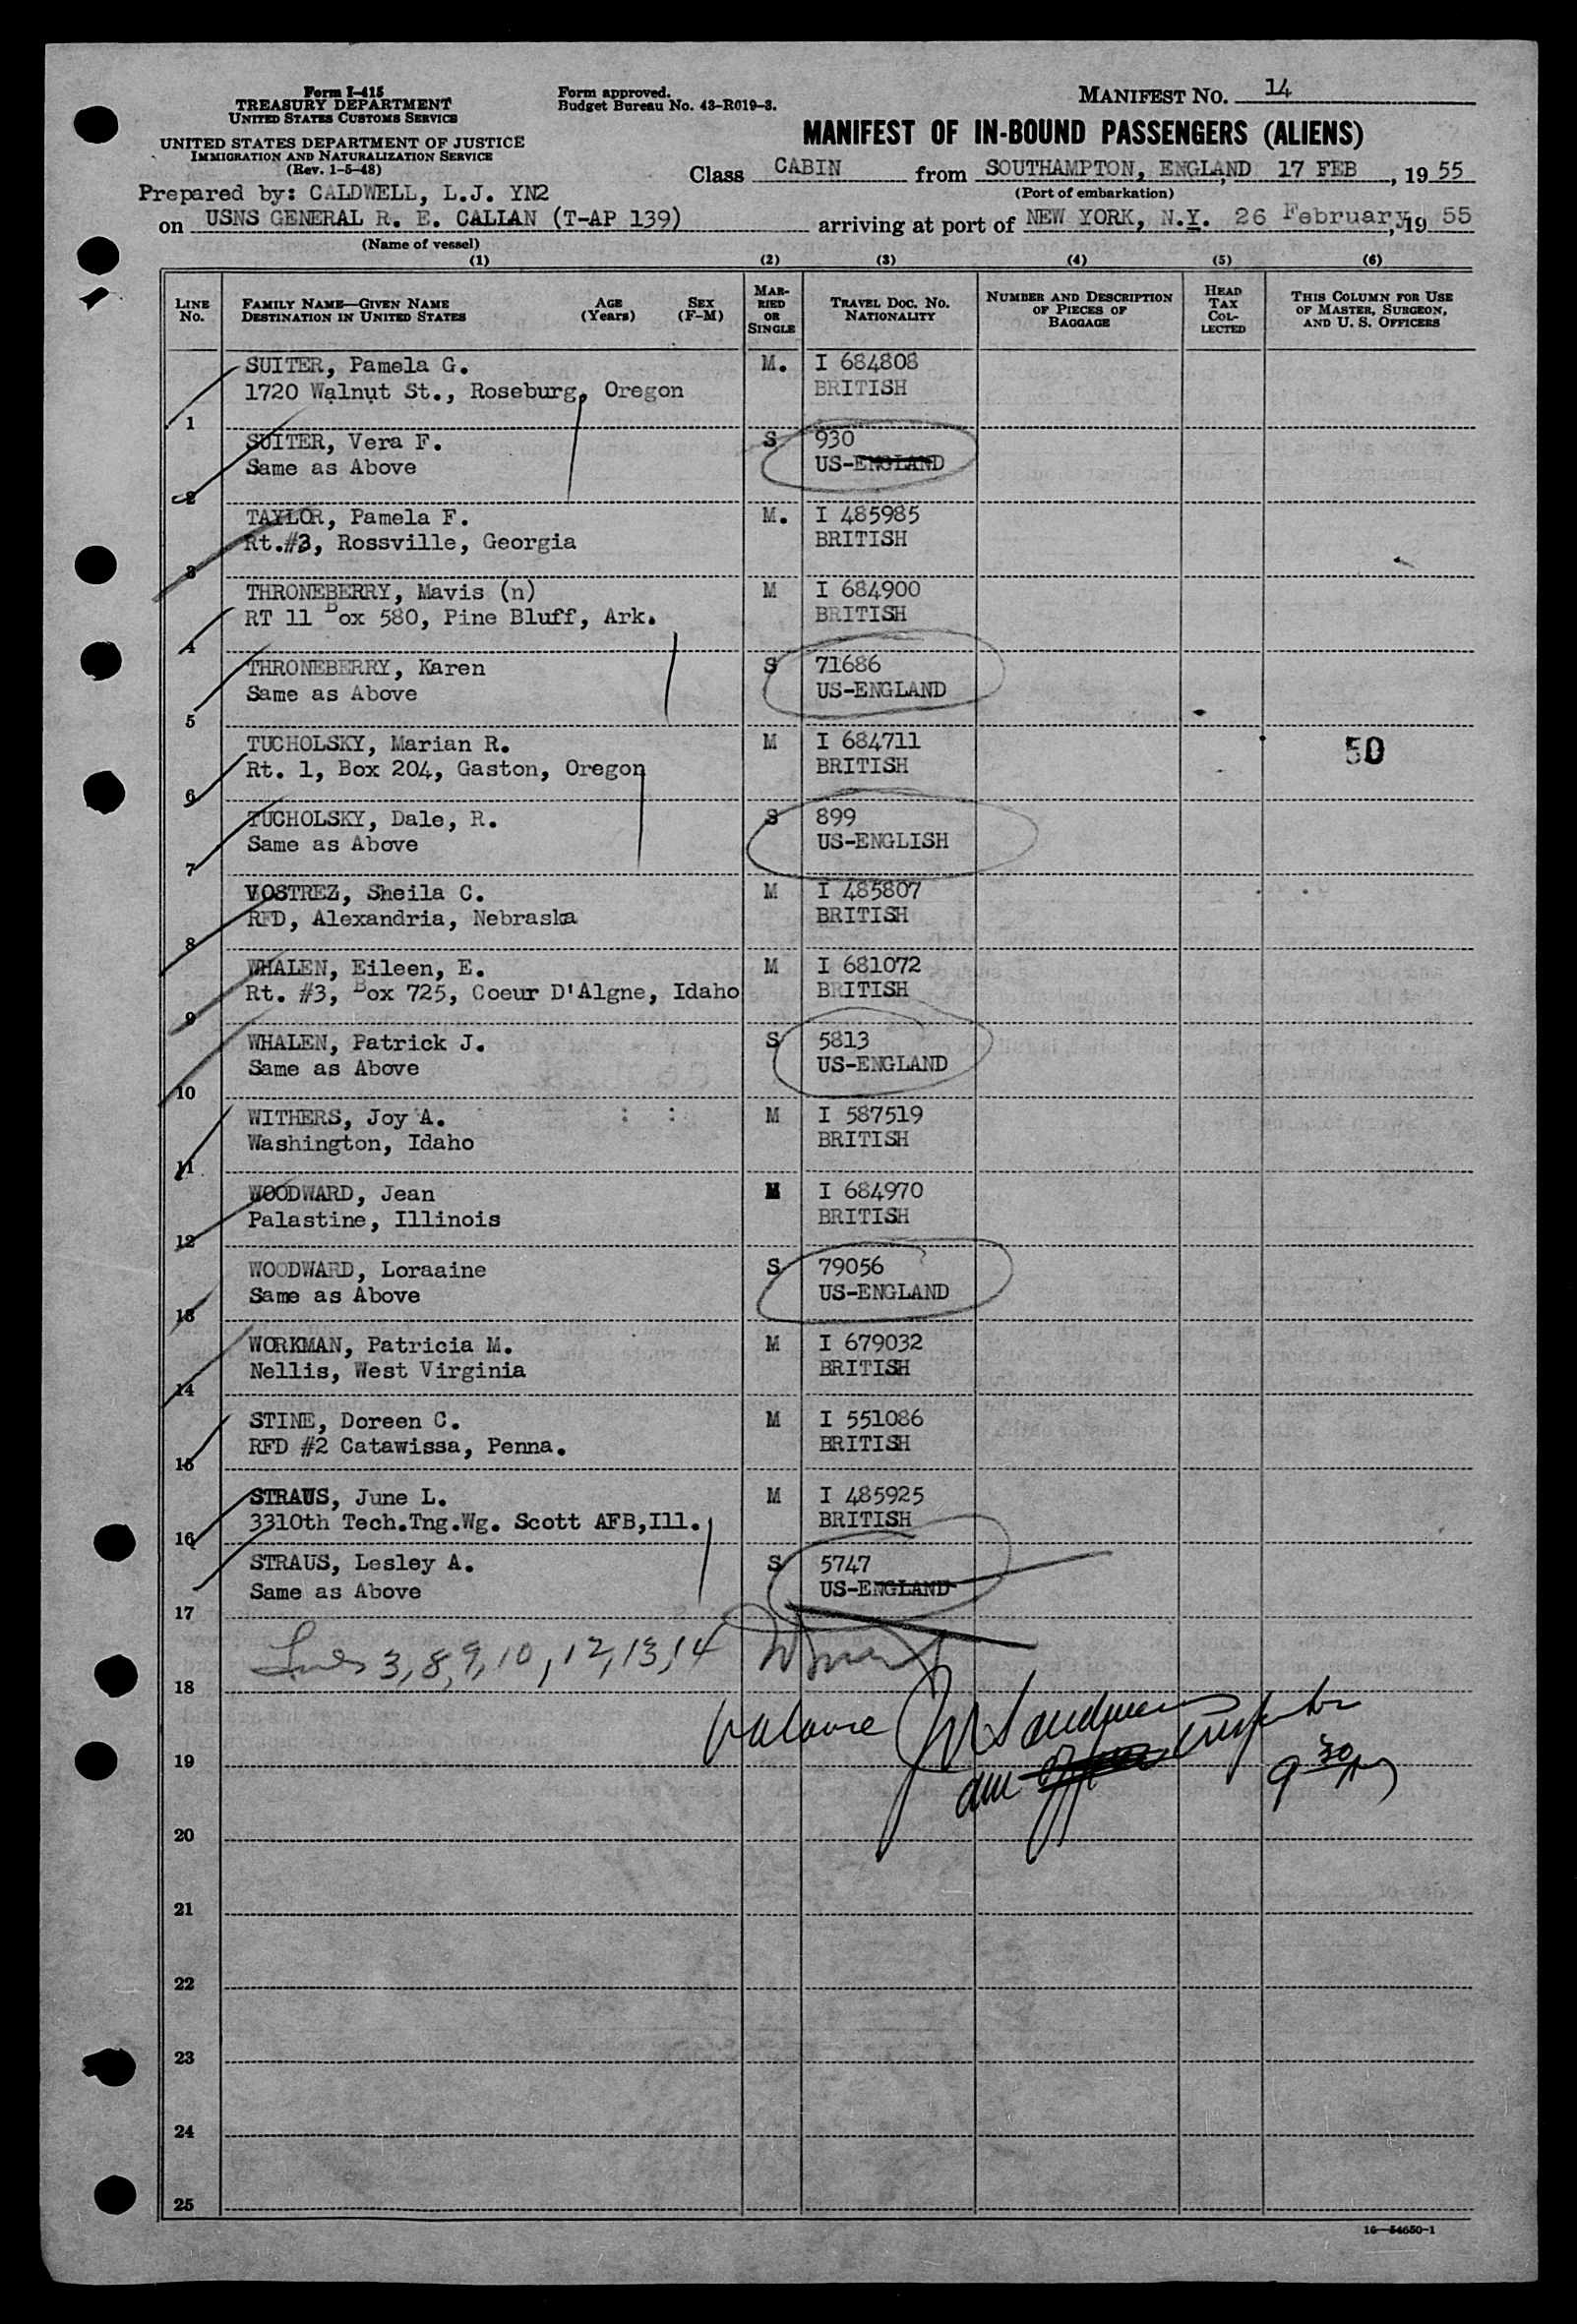 Form I-415
TREASURY DEPARTMENT
UNITED STATES CUSTOMS SERVICE
UNITED STATES DEPARTMENT OF JUSTICE
IMMIGRATION AND NATURALIZATION SERVICE
(Rev. 1-5-48)
Form approved.
Budget Bureau No. 43-R019-3.
MANIFEST NO. 14
MANIFEST OF IN-BOUND PASSENGERS (ALIENS)
Class CABIN from SOUTHAMPTON, ENGLAND, 17 FEB, 19 55
(Port of embarkation)
Prepared by: CALDWELL, L.J. YN2
on USNS GENERAL R. E. CALLAN (T-AP 139) arriving at port of NEW YORK, N.Y. 26 February, 19 55
(Name of vessel)
(1) (2) (3) (4) (5) (6)
LINE No. FAMILY NAME—GIVEN NAME DESTINATION IN UNITED STATES AGE (Years) SEX (F-M) MARRIED OR SINGLE TRAVEL DOC. NO. NATIONALITY NUMBER AND DESCRIPTION OF PIECES OF BAGGAGE HEAD TAX COLLECTED THIS COLUMN FOR USE OF MASTER, SURGEON, AND U. S. OFFICERS
SUITER, Pamela G. M. I 684808
1720 Walnut St., Roseburg, Oregon BRITISH
1
SUITER, Vera F. S 930
Same as Above US-ENGLAND
2
TAYLOR, Pamela F. M. I 485985
Rt.#3, Rossville, Georgia BRITISH
3
THRONEBERRY, Mavis (n) M I 684900
RT 11 Box 580, Pine Bluff, Ark. BRITISH
4
THRONEBERRY, Karen S 71686
Same as Above US-ENGLAND
5
TUCHOLSKY, Marian R. M I 684711 50
Rt. 1, Box 204, Gaston, Oregon BRITISH
6
TUCHOLSKY, Dale, R. S 899
Same as Above US-ENGLISH
7
VOSTREZ, Sheila C. M I 485807
RFD, Alexandria, Nebraska BRITISH
8
WHALEN, Eileen, E. M I 681072
Rt. #3, Box 725, Coeur D'Algne, Idaho BRITISH
9
WHALEN, Patrick J. S 5813
Same as Above US-ENGLAND
10
WITHERS, Joy A. : : M I 587519
Washington, Idaho BRITISH
11
WOODWARD, Jean M I 684970
Palastine, Illinois BRITISH
12
WOODWARD, Loraaine S 79056
Same as Above US-ENGLAND
13
WORKMAN, Patricia M. M I 679032
Nellis, West Virginia BRITISH
14
STINE, Doreen C. M I 551086
RFD #2 Catawissa, Penna. BRITISH
15
STRAUS, June L. M I 485925
3310th Tech.Tng.Wg. Scott AFB,Ill. BRITISH
16
STRAUS, Lesley A. S 5747
Same as Above US-ENGLAND
17
Lines 3,8,9,10,12,13,14
18
balance
19
9 30
20
21
22
23
24
25
16—54650-1